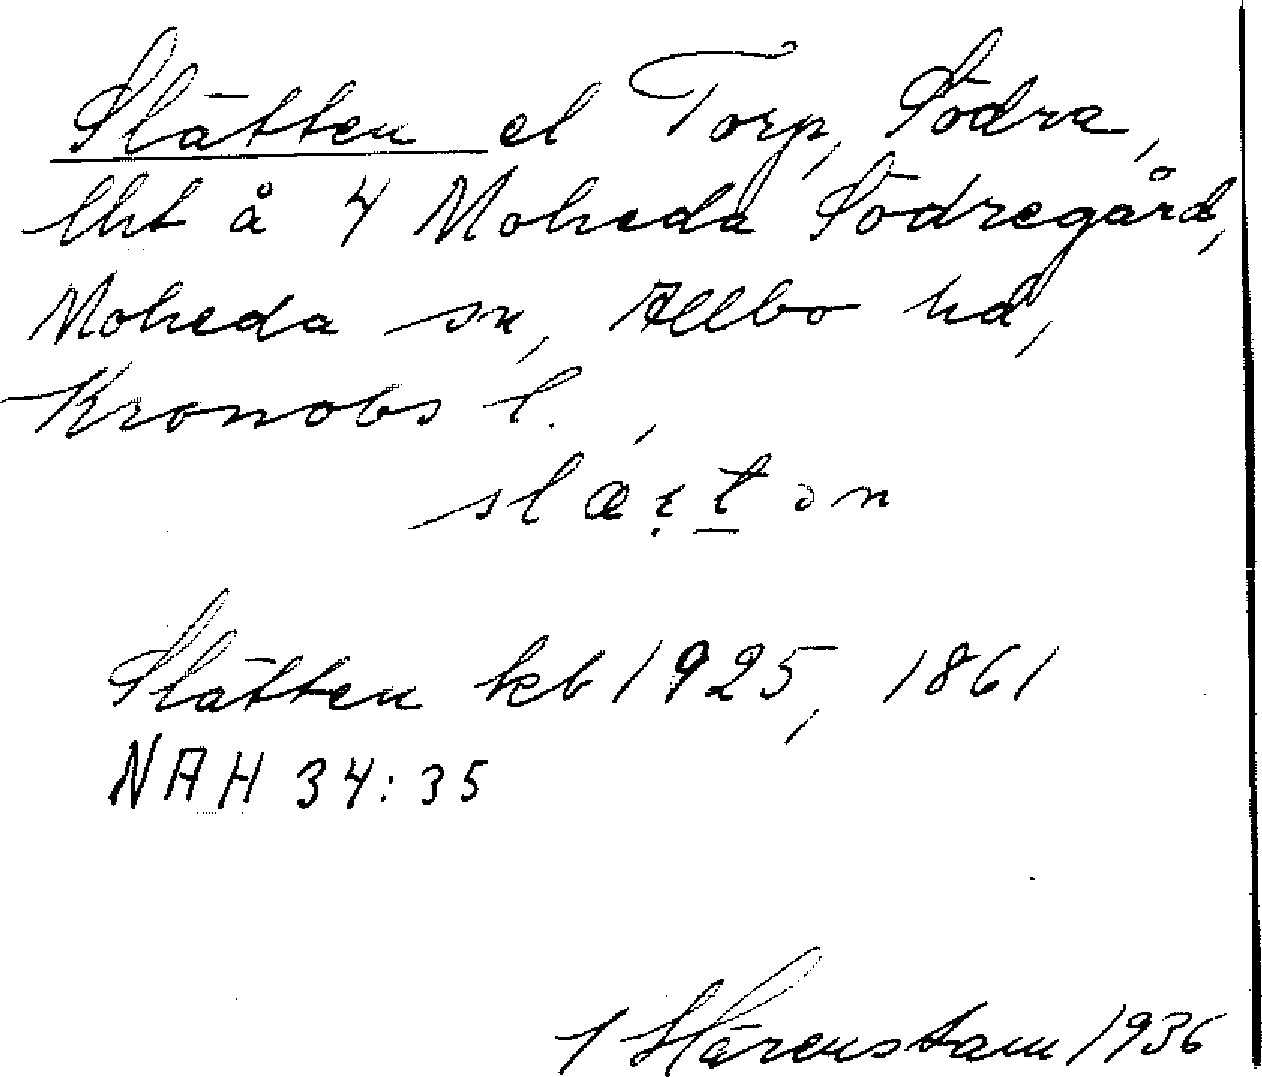 Slätten el Torp, Södra,
lht å 4 Moheda Södregård,
Moheda sn, Allbo hd,
Kronobs l.
slætən
Slätten kb 1925, 1861
NAH 34:35
Härenstam 1936